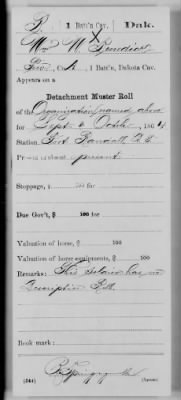 B, 1 Batt'n Cav. Dak.
Wm W Benedict
Co. A, 1 Batt'n, Dakota Cav.
Appears on a
Detachment Muster Roll
of the Organization named above
for Sept & Octbr, 1864
Station, Fort Randall D.T.
Present or absent present
Stoppage, $ 100 for
Due Gov't, $ 100 for
Valuation of horse, $ 100
Valuation of horse equipments, $ 100
Remarks: This soldier has no
Descriptive Roll
Book mark:
(344) Copyist.